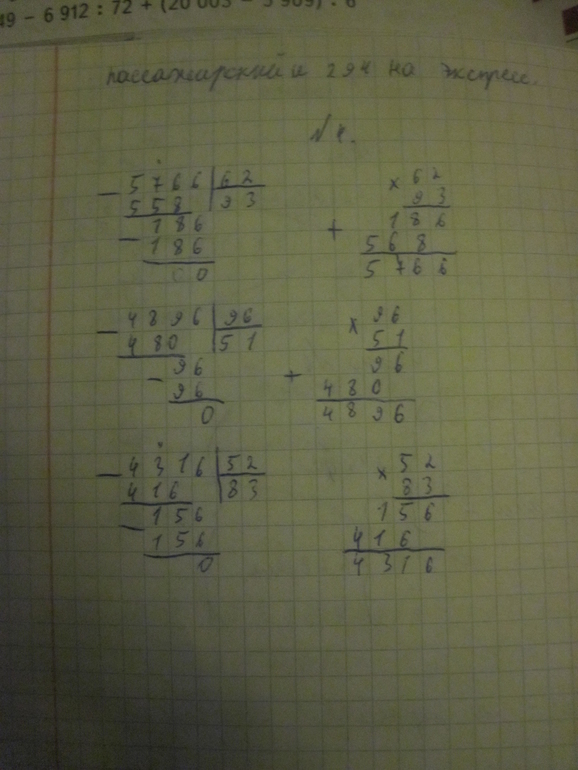 49 – 6 912 : 72 + (20 003 – 5 909) : 6
пассажирский и 294 на экспресс.
№ 4.
– 5766 | 62
558 | 93
– 186
186
0 0
× 62
93
+ 186
568
5766
– 4896 | 96
480 | 51
– 96
96
0
× 96
51
+ 96
480
4896
– 4316 | 52
416 | 83
– 156
156
0
× 52
83
156
416
4316